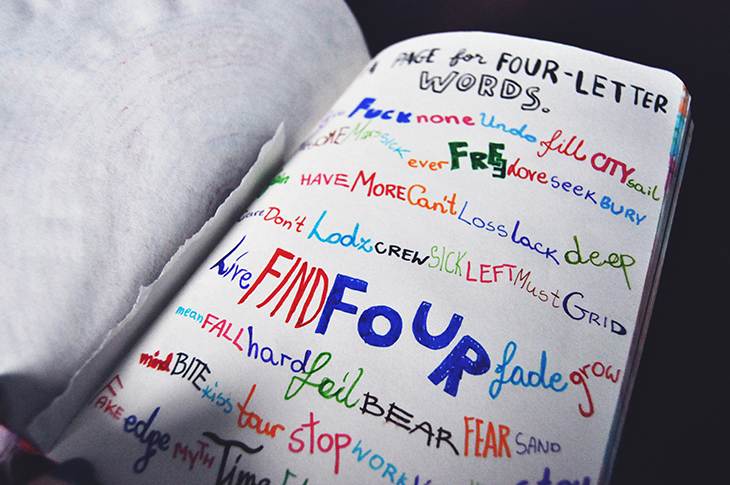 A PAGE for FOUR-LETTER
WORDS.
Fuck none Undo fill CITY sail
COME Mars SICK ever FREE love seek BURY
HAVE MORE Can't Loss lack deep
Don't Lodz CREW SICK LEFT Must GRID
Live FIND FOUR fade grow
mean FALL hard foil BEAR FEAR SAND
mind BITE kiss tour stop WORK
FAKE edge MYTH Time